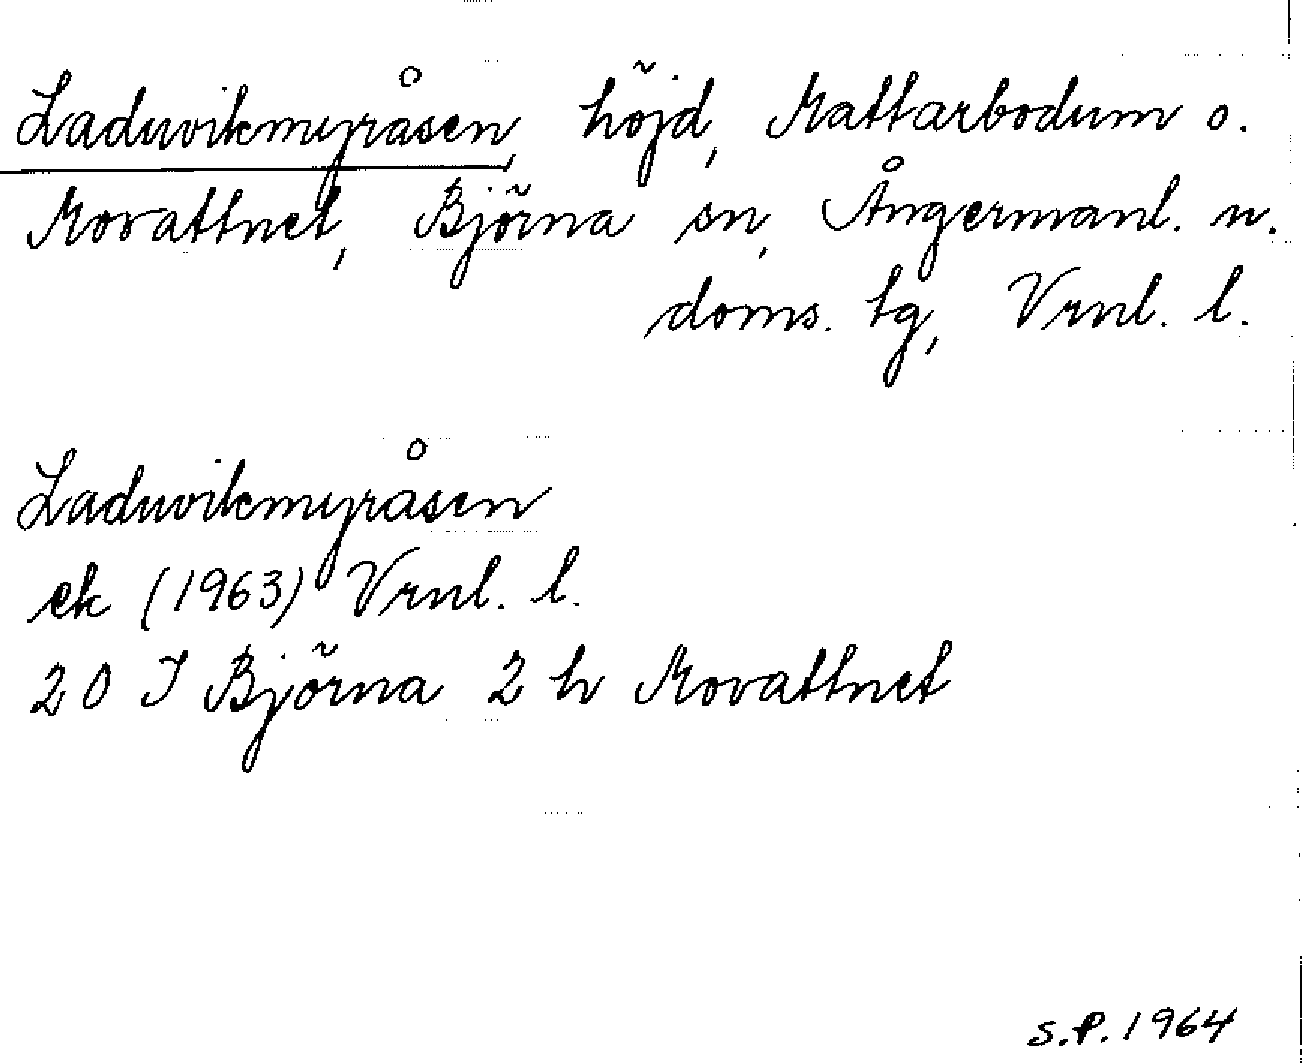 Laduvikmyråsen, höjd, Mattarbodum o.
Movattnet, Björna sn, Ångermanl. n.
doms. tg, Vrnl. l.
Laduvikmyråsen
ek (1963) Vrnl. l.
20 I Björna 2 h Movattnet
S.P. 1964